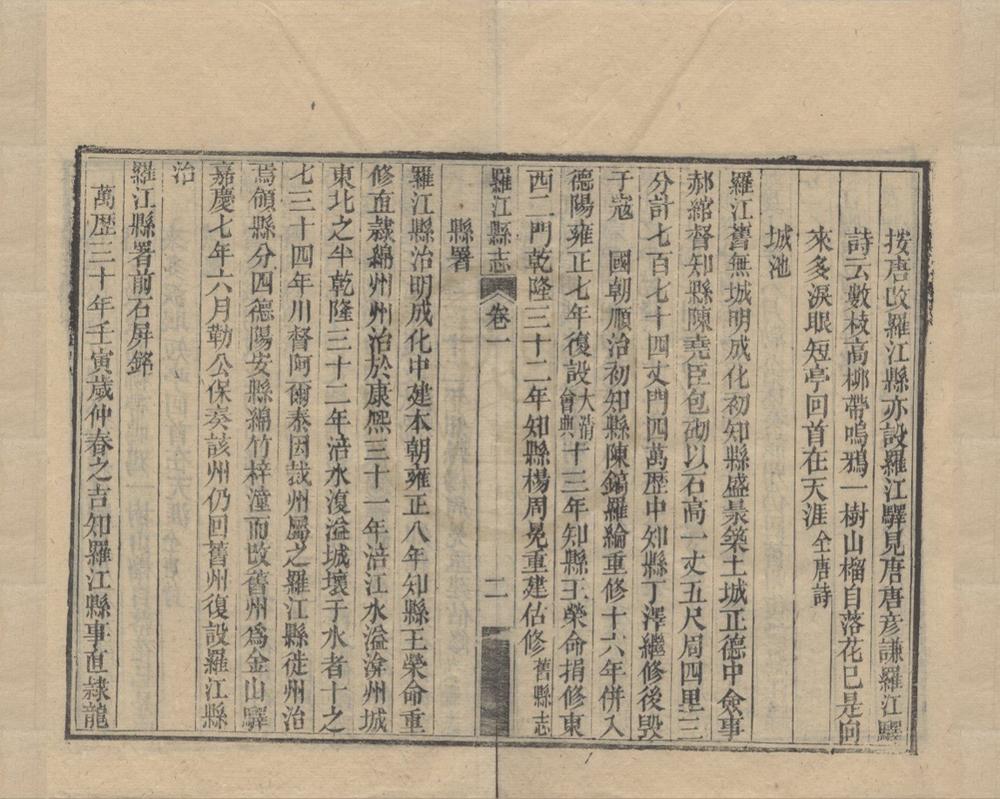 按唐改羅江縣亦設羅江驛見唐唐彥謙羅江驛
詩云數枝高柳帶鳴鴉一樹山榴自落花已是向
來多淚眼短亭回首在天涯全唐詩
城池
羅江舊無城明成化初知縣盛景築土城正德中僉事
郝綰督知縣陳堯臣包砌以石高一丈五尺周四里三
分計七百七十四丈門四萬歷中知縣丁澤繼修後毀
于寇　國朝順治初知縣陳鎬羅綸重修十六年併入
德陽雍正七年復設大清會典十三年知縣王榮命捐修東
西二門乾隆三十二年知縣楊周冕重建估修舊縣志
羅江縣志　卷一　二
縣署
羅江縣治明成化中建本朝雍正八年知縣王榮命重
修直隸綿州州治於康熙三十一年涪江水溢渰州城
東北之半乾隆三十二年涪水復溢城壞于水者十之
七三十四年川督阿爾泰因裁州屬之羅江縣徙州治
焉領縣分四德陽安縣綿竹梓潼而改舊州為金山驛
嘉慶七年六月勒公保奏該州仍回舊州復設羅江縣
治
羅江縣署前石屏銘
萬歷三十年壬寅歲仲春之吉知羅江縣事直隸龍